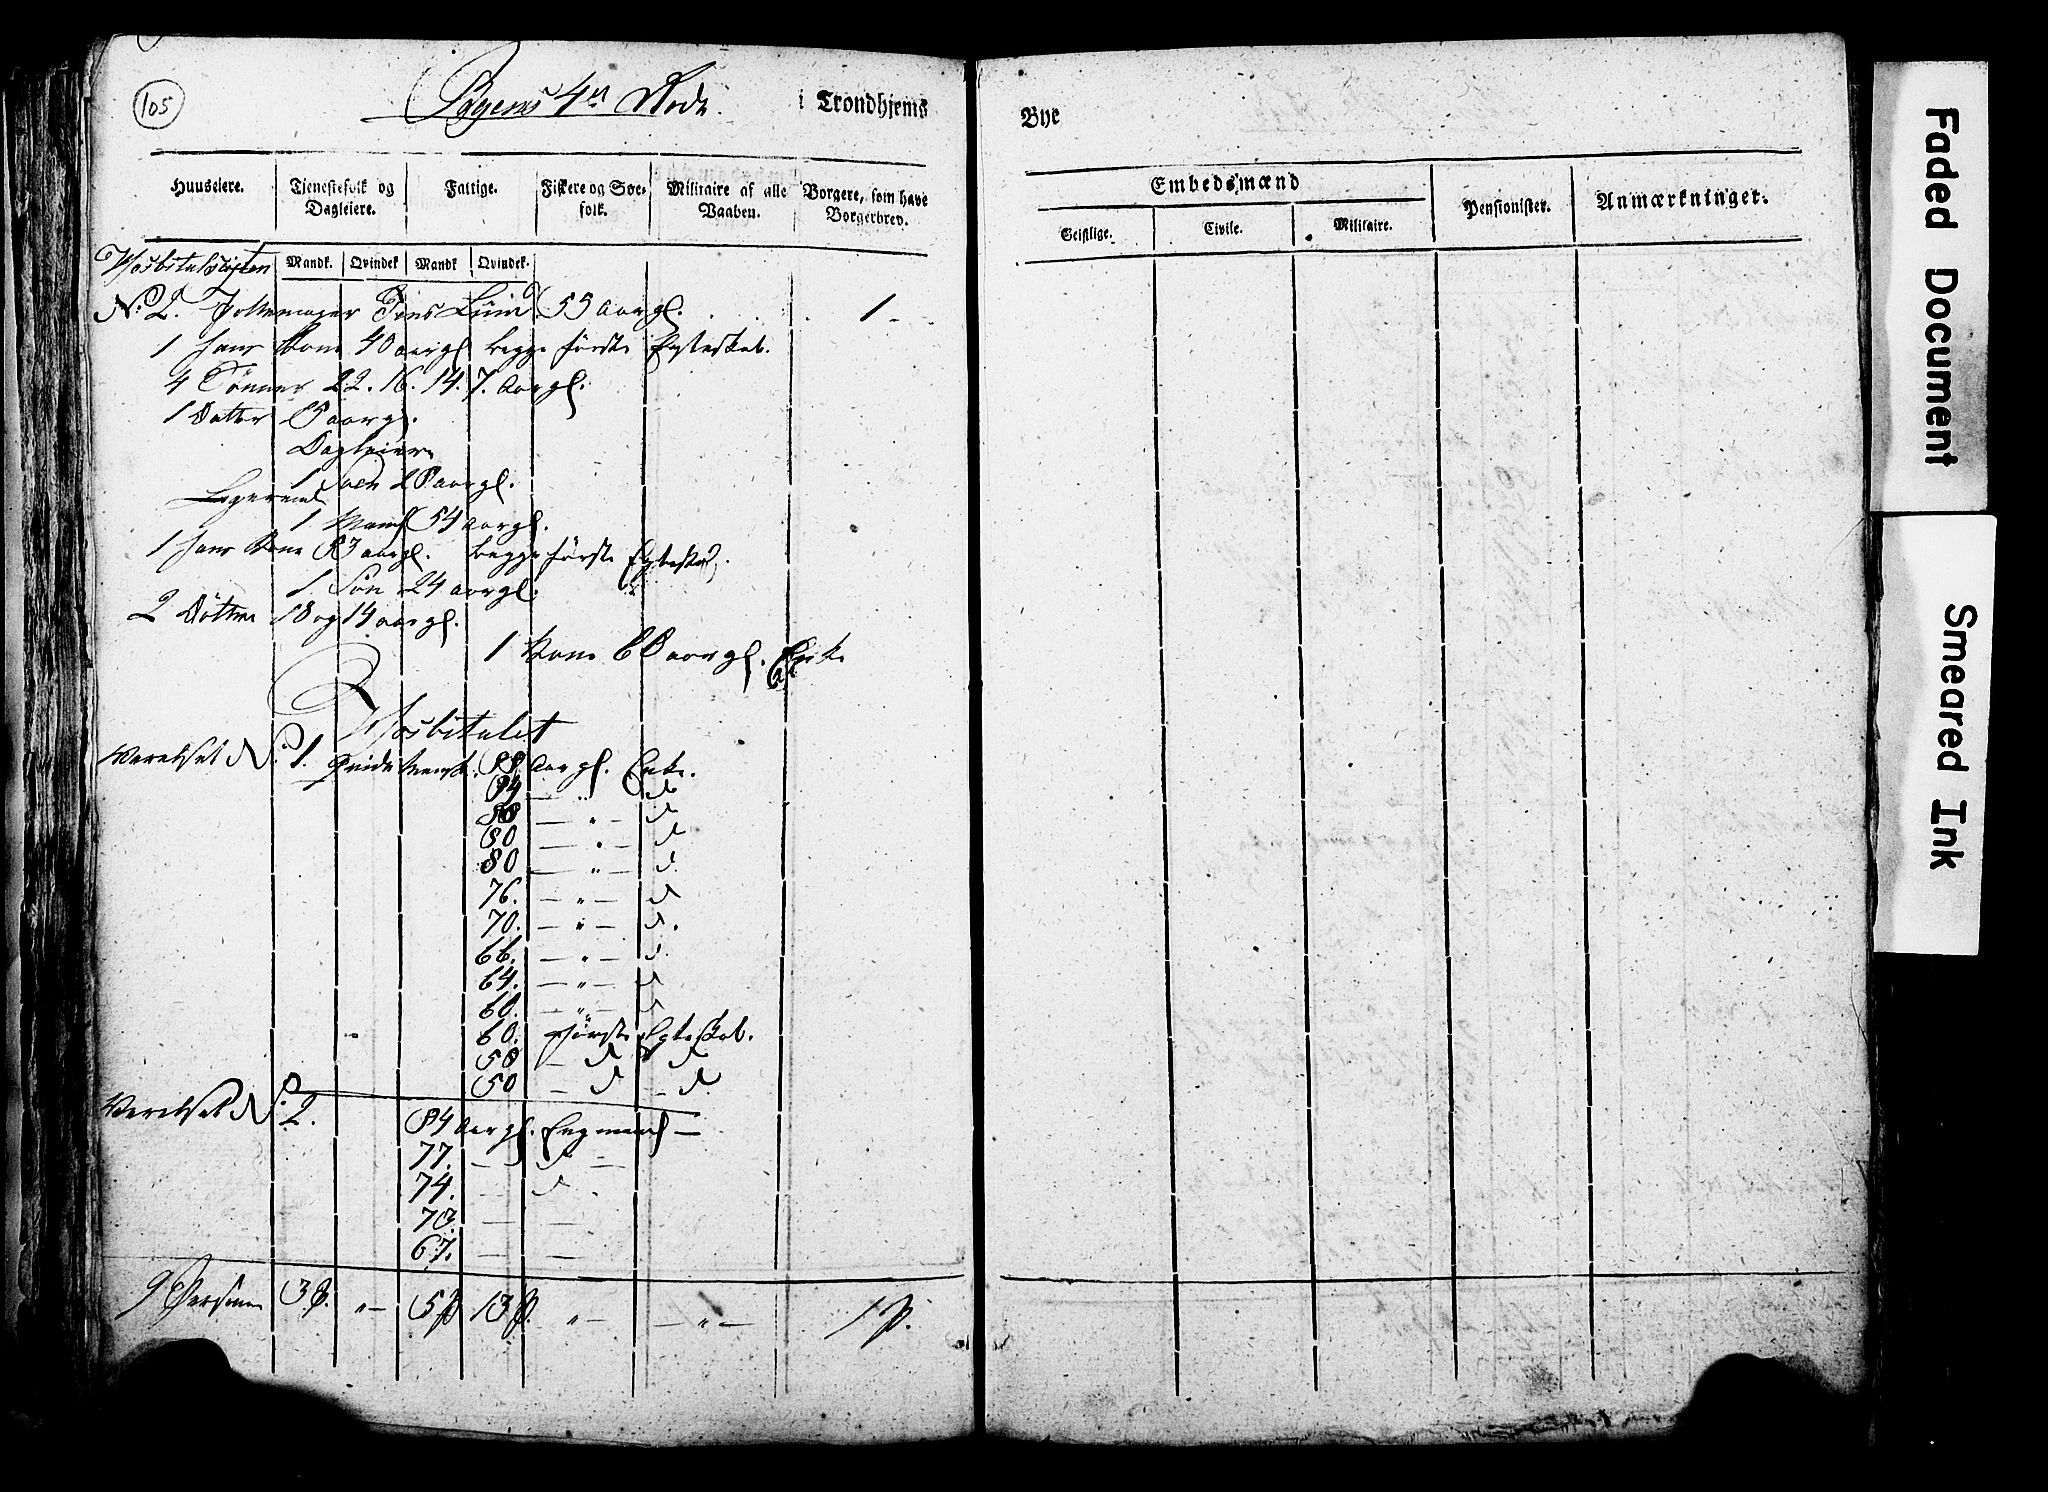 105
Byens 4de Rode i Trondhjems Bye
Huuseiere. Tjenestefolk og Dagleiere. Fattige. Fiskere og Søefolk. Militaire af alle Vaaben. Borgere, som have Borgerbrev. Embedsmænd Pensionister. Anmærkninger.
Geistlige. Civile. Militaire.
Hosbitalsløkken Mandk. Qvindek Mandk Qvindek.
No. 2. Pottemager Jens Lund 55 aargl. 1
1 hans Kone 40 aargl. begge første Egteskab.
4 Sönner 22. 16. 14. 7. aargl.
1 Datter aargl.
Dagleiere
1 Svend 28 aargl.
Logerende
1 Mand 54 aargl.
1 hans Kone 53 aargl. begge første Egteskab.
1 Sön 24 aargl.
2 Döttre 18 og 14 aargl.
1 Kone 60 aargl. Enke
Hosbitalet
Værelset No. 1. Qvindemensk. 88 aargl. Enke.
84 — " — d
88 — " — d
80 — " — d
80 — " — d
76. — " — d
70. — " — d.
66. — " — d.
64. — " — d
60. — " — d
60. første Egteskab.
58 — d d
50 — d — d.
Værelset No. 2. 84 aargl. Enkmand —
77. — d —
74. — d
70. — —
67. — —
9 Personer 3 P. " — 5 P 13 P. " — — " — 1 P.
Faded Document
Smeared Ink